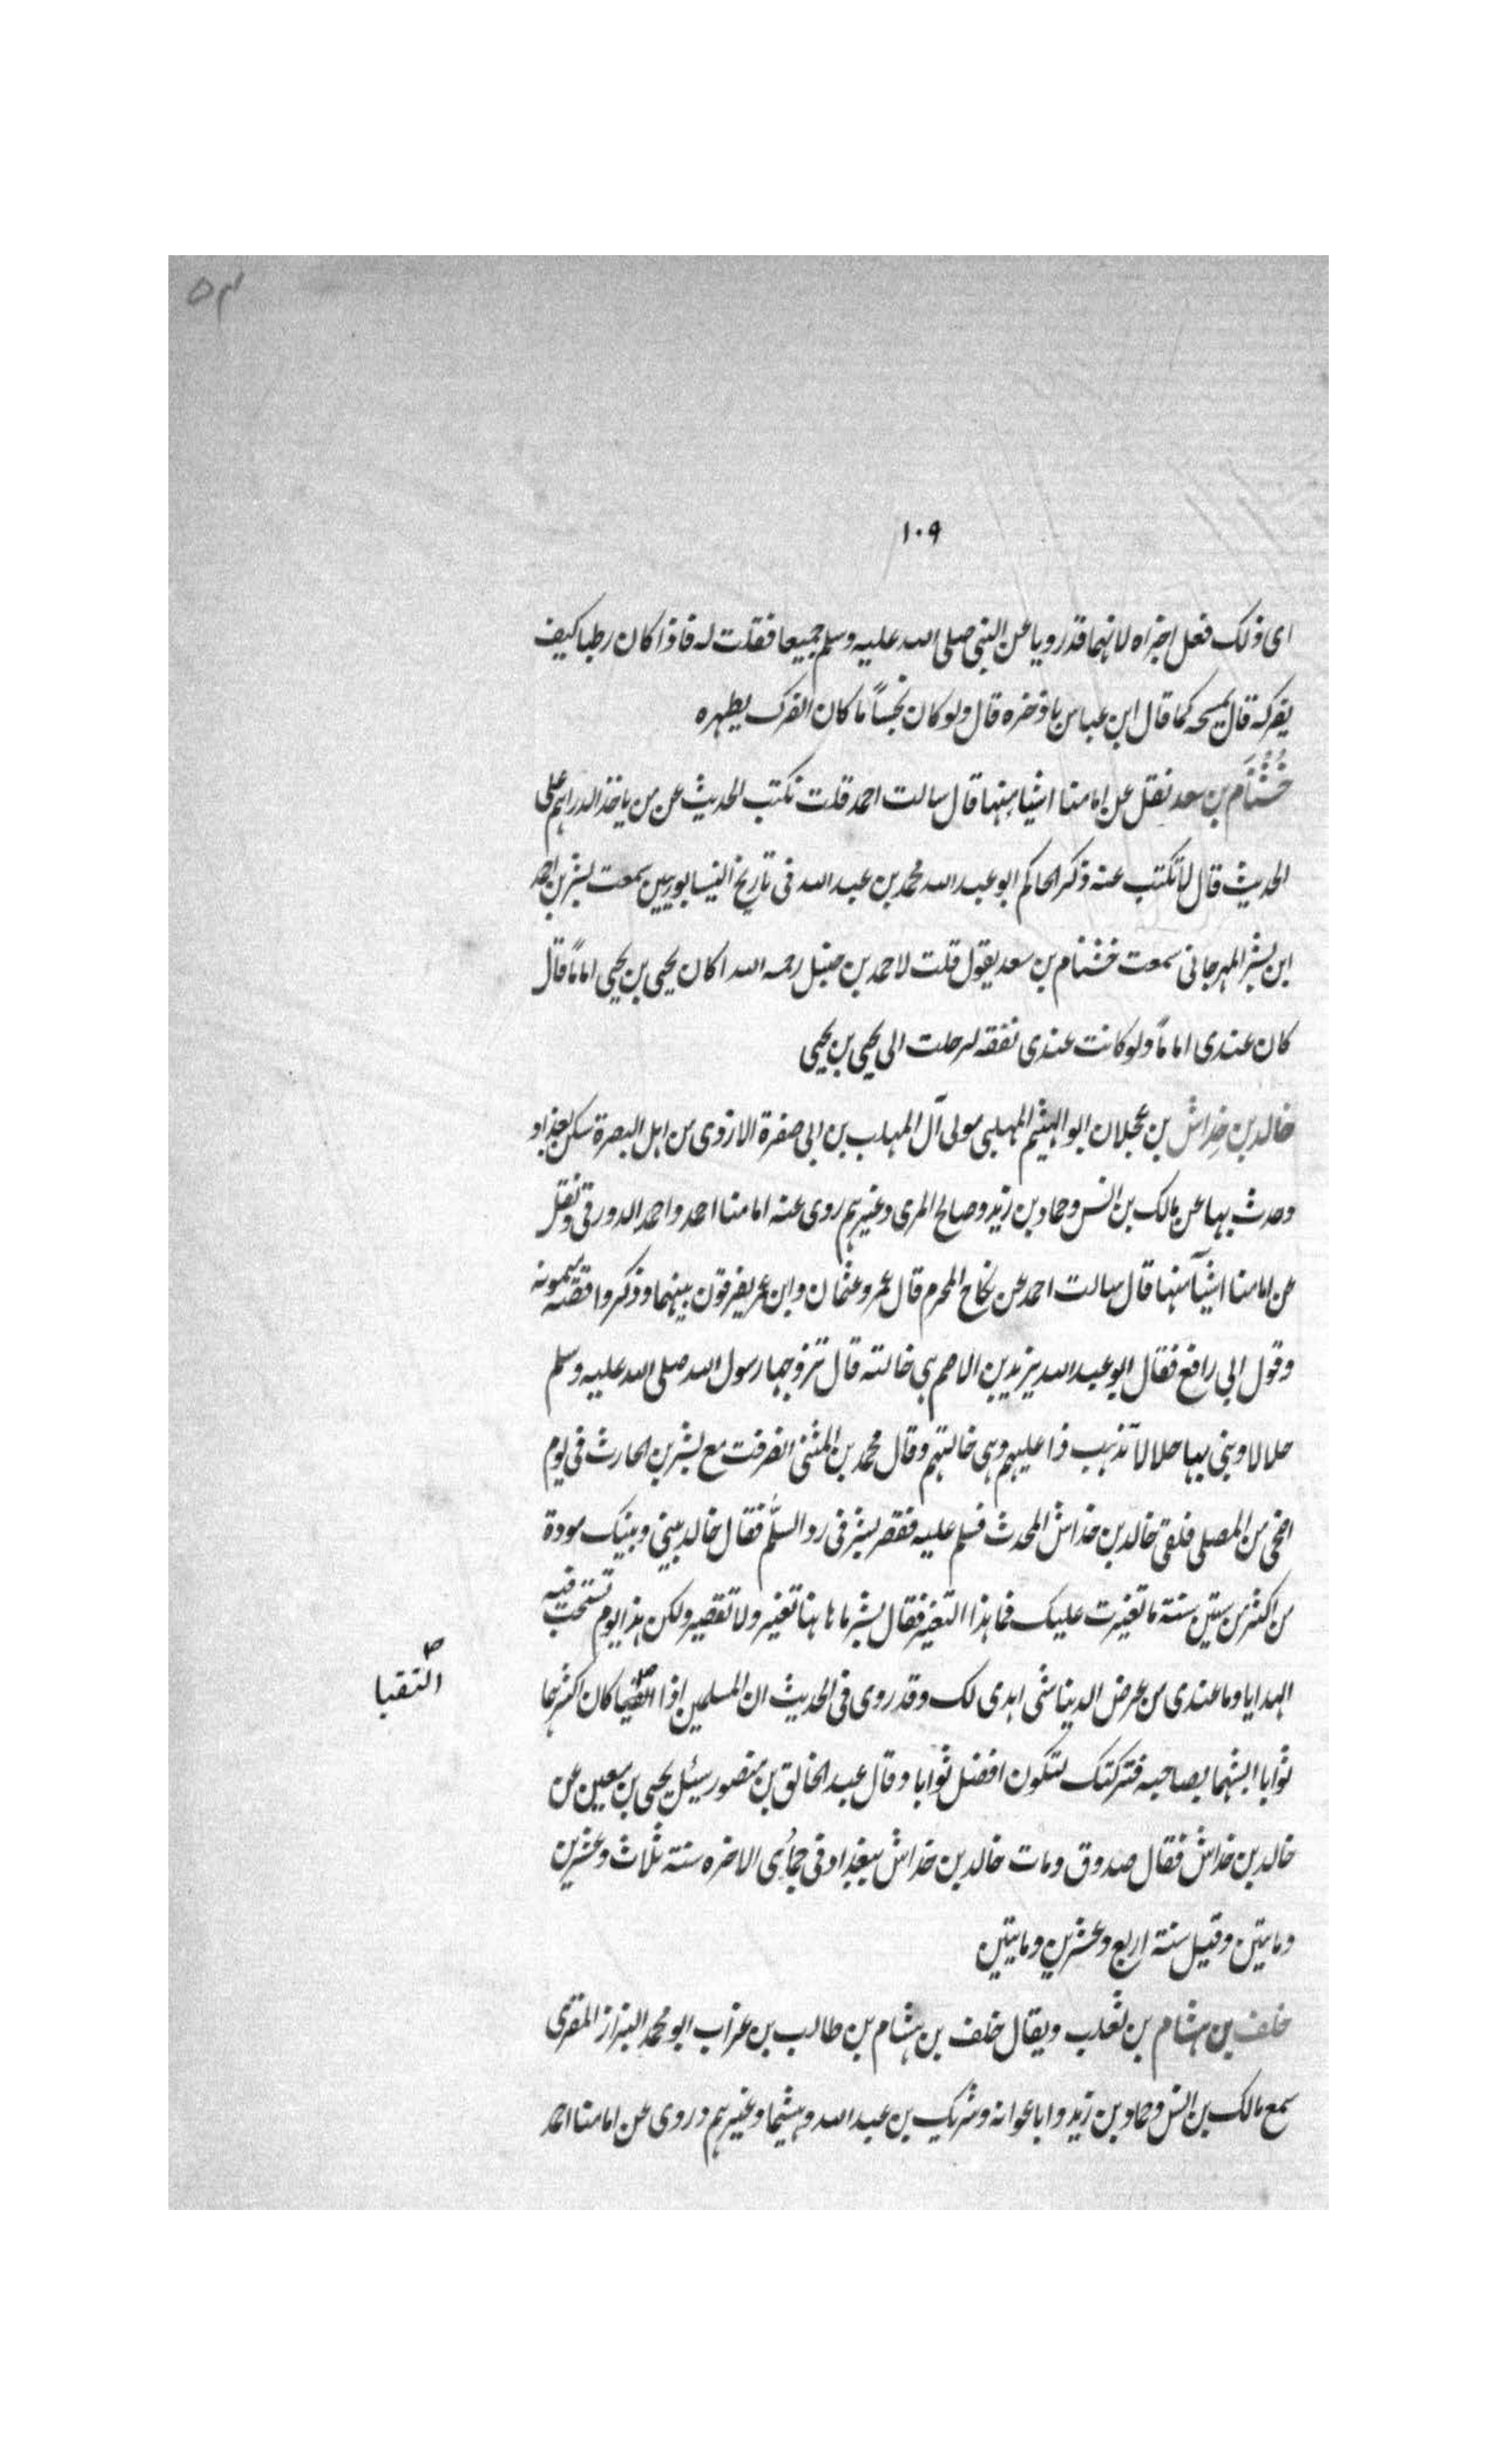 ٥٣
١٠٩
اى ذلك فعل اجزاه لانهما قدرويا عن النبى صلى الله عليه وسلم جميعا فقلت له فاذا كان رطبا كيف
يفركه قال يمسحه كما قال ابن عباس باذخره قال ولو كان نجساً ما كان الفرك يطهره
خُشْنَام بن سعد نقل عن امامنا اشيا منها قال سالت احمد قلت نكتب الحديث عن من ياخذ الدراهم على
الحديث قال لا تكتب عنه ذكر الحاكم ابو عبد الله محمد بن عبد الله فى تاريخ النيسابوريين سمعت بشر بن احمد
ابن بشر المهرجانى سمعت خشنام بن سعد يقول قلت لاحمد بن حنبل رحمه الله اكان يحيى بن يحيى اماماً قال
كان عندى اماماً ولو كانت عندى نفقه لرحلت الى يحيى بن يحيى
خالد بن خِداش بن عجلان ابو الهيثم المهلبى مولى آل المهلب بن ابى صفرة الازدى من اهل البصرة سكن بغداد
وحدث بها عن مالك بن انس وحماد بن زيد وصالح المرى وغيرهم روى عنه امامنا احمد واحمد الدورقى ونقل
عن امامنا اشيآ منها قال سالت احمد عن نكاح المحرم قال عمر وعثمان وابن عمر يفرقون بينهما وذكروا قصة ميمونه
وقول ابى رافع فقال ابو عبد الله يزيد بن الاصم هى خالته قال تزوجها رسول الله صلى الله عليه وسلم
حلالا وبنى بها حلالاً تذهب ذا عليهم وهى خالتهم وقال محمد بن المثنى انصرفت مع بشر بن الحارث فى يوم
اضحى من المصلى فلقى خالد بن خداش المحدث فسلم عليه فقصر بشر فى رد السلم فقال خالد بينى وبينك مودة
من اكثر من ستين سنة ما تغيرت عليك فما هذا التغير فقال بشر ما هاهنا تغير ولا تقصير ولكن هذا يوم تستحب فيه
الهدايا وما عندى من عرض الدينا شى اهدى لك وقد روى فى الحديث ان المسلمين اذا كان اكثرهما
التقيا
ثوابا ابشهما بصاحبه فتركتك لتكون افضل ثوابا وقال عبد الخالق بن منصور سئيل يحيى بن معين عن
خالد بن خداش فقال صدوق ومات خالد بن خداش ببغداد فى جمادُى الاخره سنة ثلاث وعشرين
ومايتين وقيل سنة اربع وعشرين ومايتين
خلف بن هشام بن ثعلب ويقال خلف بن هشام بن طالب بن غراب ابو محمد البزاز المقرى
سمع مالك بن انس وحماد بن زيد وابا عوانه وشريك بن عبد الله وهشيما وغيرهم وروى عن امامنا احمد